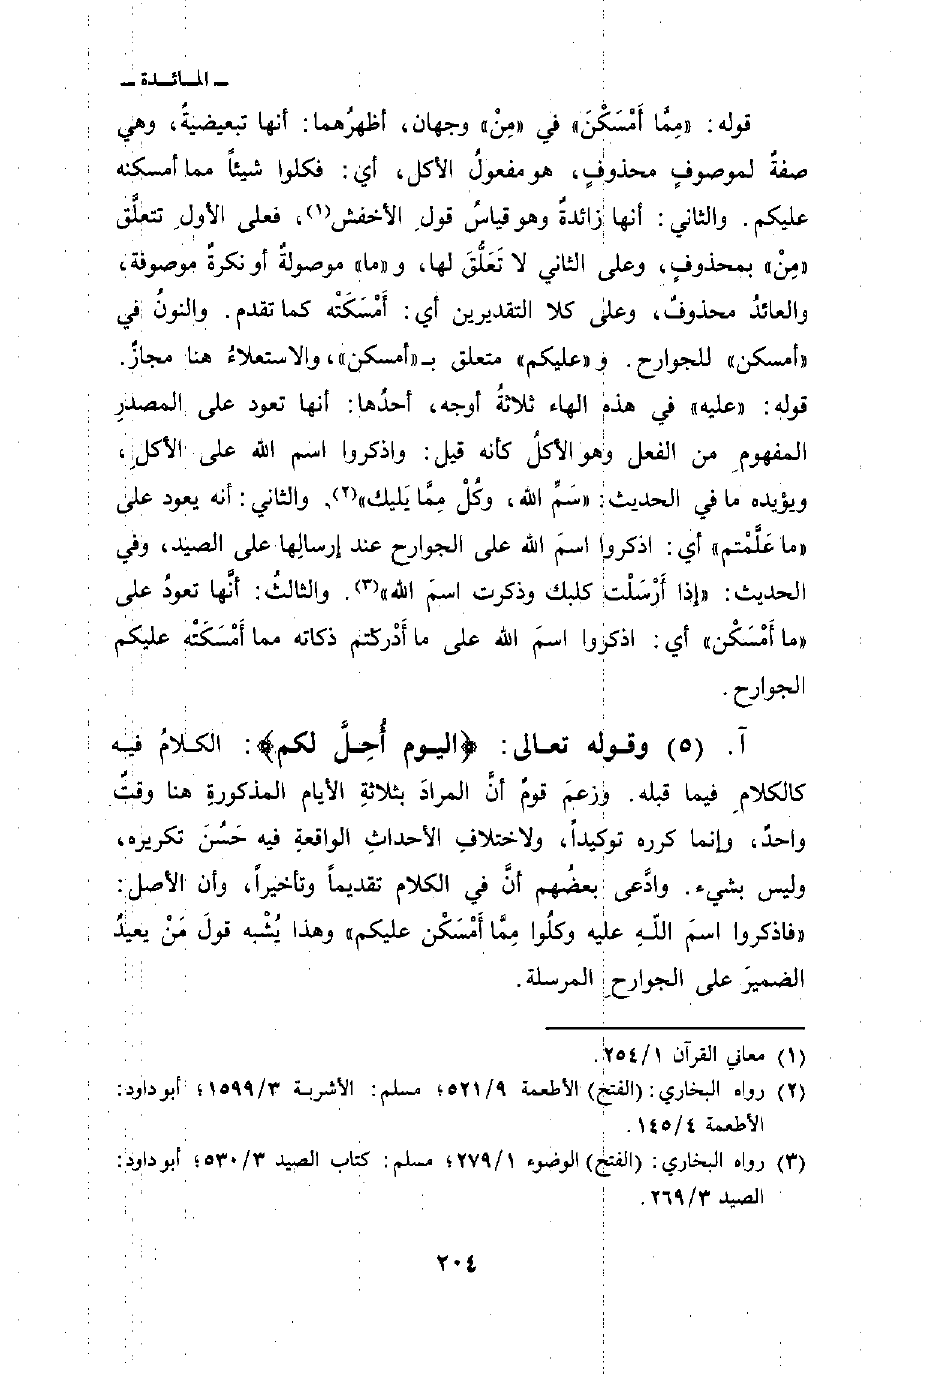 ـ المائدة ـ
قوله: «مِمَّا أَمْسَكْنَ» في «مِنْ» وجهان، أظهرُهما: أنها تبعيضيةٌ، وهي
صفةٌ لموصوفٍ محذوفٍ، هو مفعولُ الأكل، أي: فكلوا شيئاً مما أمسكنه
عليكم. والثاني: أنها زائدةٌ وهو قياسُ قولِ الأخفش(١)، فعلى الأولِ تتعلَّق
«مِنْ» بمحذوفٍ، وعلى الثاني لا تَعَلُّق لها، و «ما» موصولةٌ أو نكرةٌ موصوفة،
والعائدُ محذوفٌ، وعلى كلا التقديرين أي: أَمْسَكَتْه كما تقدم. والنونُ في
«أمسكن» للجوارح. و «عليكم» متعلق بـ«أمسكن»، والاستعلاءُ هنا مجازٌ.
قوله: «عليه» في هذه الهاء ثلاثةُ أوجه، أحدُها: أنها تعود على المصدرِ
المفهومِ من الفعل وهو الأكلُ كأنه قيل: واذكروا اسم الله على الأكلِ،
ويؤيده ما في الحديث: «سَمِّ الله، وكُلْ مِمَّا يَليك»(٢). والثاني: أنه يعود على
«ما عَلَّمْتم» أي: اذكروا اسمَ الله على الجوارح عند إرسالِها على الصيد، وفي
الحديث: «إذا أَرْسَلْت كلبك وذكرت اسمَ الله»(٣). والثالثُ: أنَّها تعودُ على
«ما أَمْسَكْن» أي: اذكروا اسمَ الله على ما أَدْركتم ذكاته مما أَمْسَكَتْه عليكم
الجوارح.
آ. (٥) وقوله تعالى: ﴿اليوم أُحِلَّ لكم﴾: الكلامُ فيه
كالكلامِ فيما قبله. وزعمَ قومٌ أنَّ المرادَ بثلاثةِ الأيام المذكورةِ هنا وقتٌ
واحدٌ، وإنما كرره توكيداً، ولاختلافِ الأحداثِ الواقعةِ فيه حَسُنَ تكريره،
وليس بشيء. وادَّعى بعضُهم أنَّ في الكلام تقديماً وتأخيراً، وأن الأصل:
«فاذكروا اسمَ اللَّهِ عليه وكلُوا مِمَّا أَمْسَكْن عليكم» وهذا يُشْبه قولَ مَنْ يعيدُ
الضميرَ على الجوارحِ المرسلة.
(١) معاني القرآن ٢٥٤/١.
(٢) رواه البخاري: (الفتح) الأطعمة ٥٢١/٩؛ مسلم: الأشربة ١٥٩٩/٣؛ أبو داود:
الأطعمة ١٤٥/٤.
(٣) رواه البخاري: (الفتح) الوضوء ٢٧٩/١؛ مسلم: كتاب الصيد ٥٣٠/٣؛ أبو داود:
الصيد ٢٦٩/٣.
٢٠٤